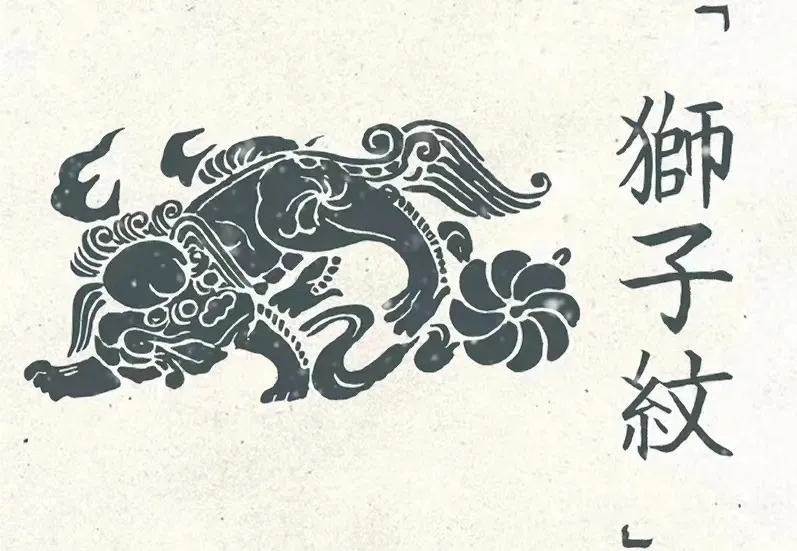 「獅子紋」